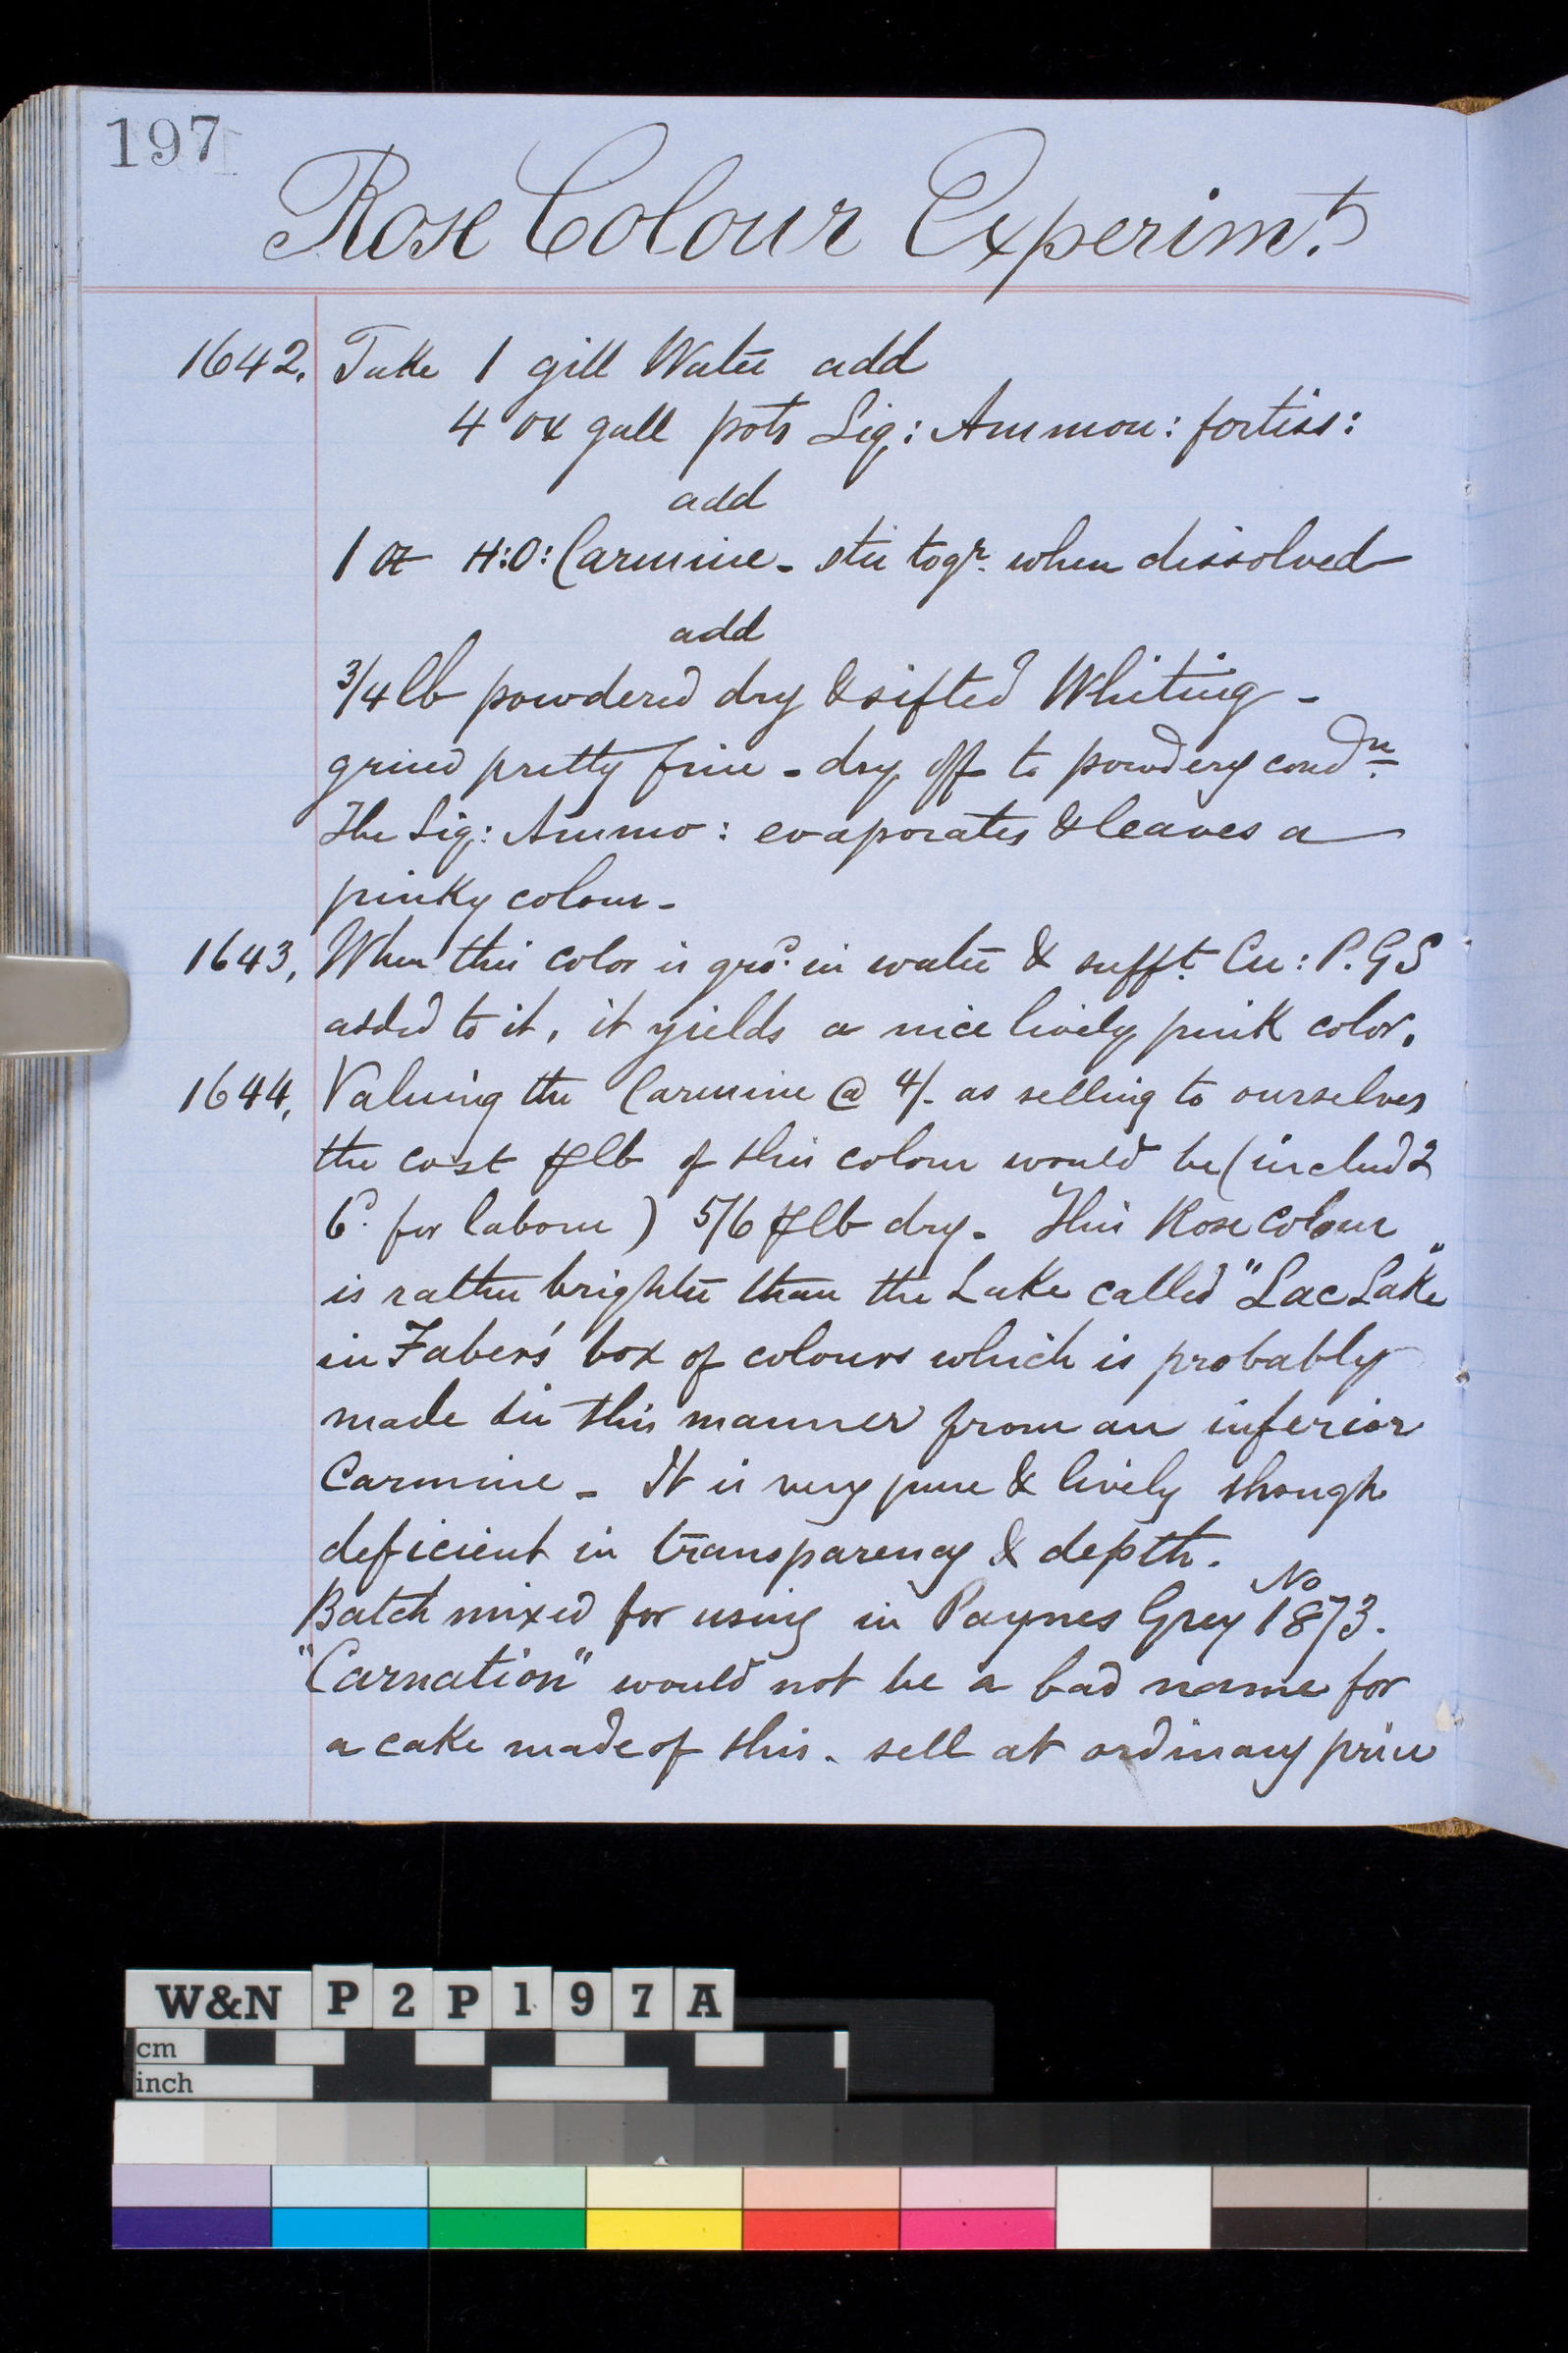 197
Rose Colour Experimts
1642. Take 1 gill Water add
4 ox gall pots Liq: Ammon: fortiss:
add
1 oz H:O: Carmine - stir togr. when dissolved
add
3/4 lb powdered dry & sifted Whiting -
grind pretty fine - dry off to powdery condn.
The Liq: Ammo: evaporates & leaves a
pinky colour -
1643, When this color is grd. in water & sufft. Cu: P. G S
added to it, it yields a nice lively pink color.
1644, Valuing the Carmine @ 4/- as selling to ourselves
the cost ⅌ lb of this colour would be (includg
6d. for labour) 5/6 ⅌ lb dry. This Rose Colour
is rather brighter than the Lake called "Lac Lake"
in Faber's box of colours which is probably
made in this manner from an inferior
Carmine - It is very pure & lively though
deficient in transparency & depth.
Batch mixed for using in Paynes Grey No 1873.
"Carnation" would not be a bad name for
a cake made of this. sell at ordinary price
W&N P2P197A
cm
inch